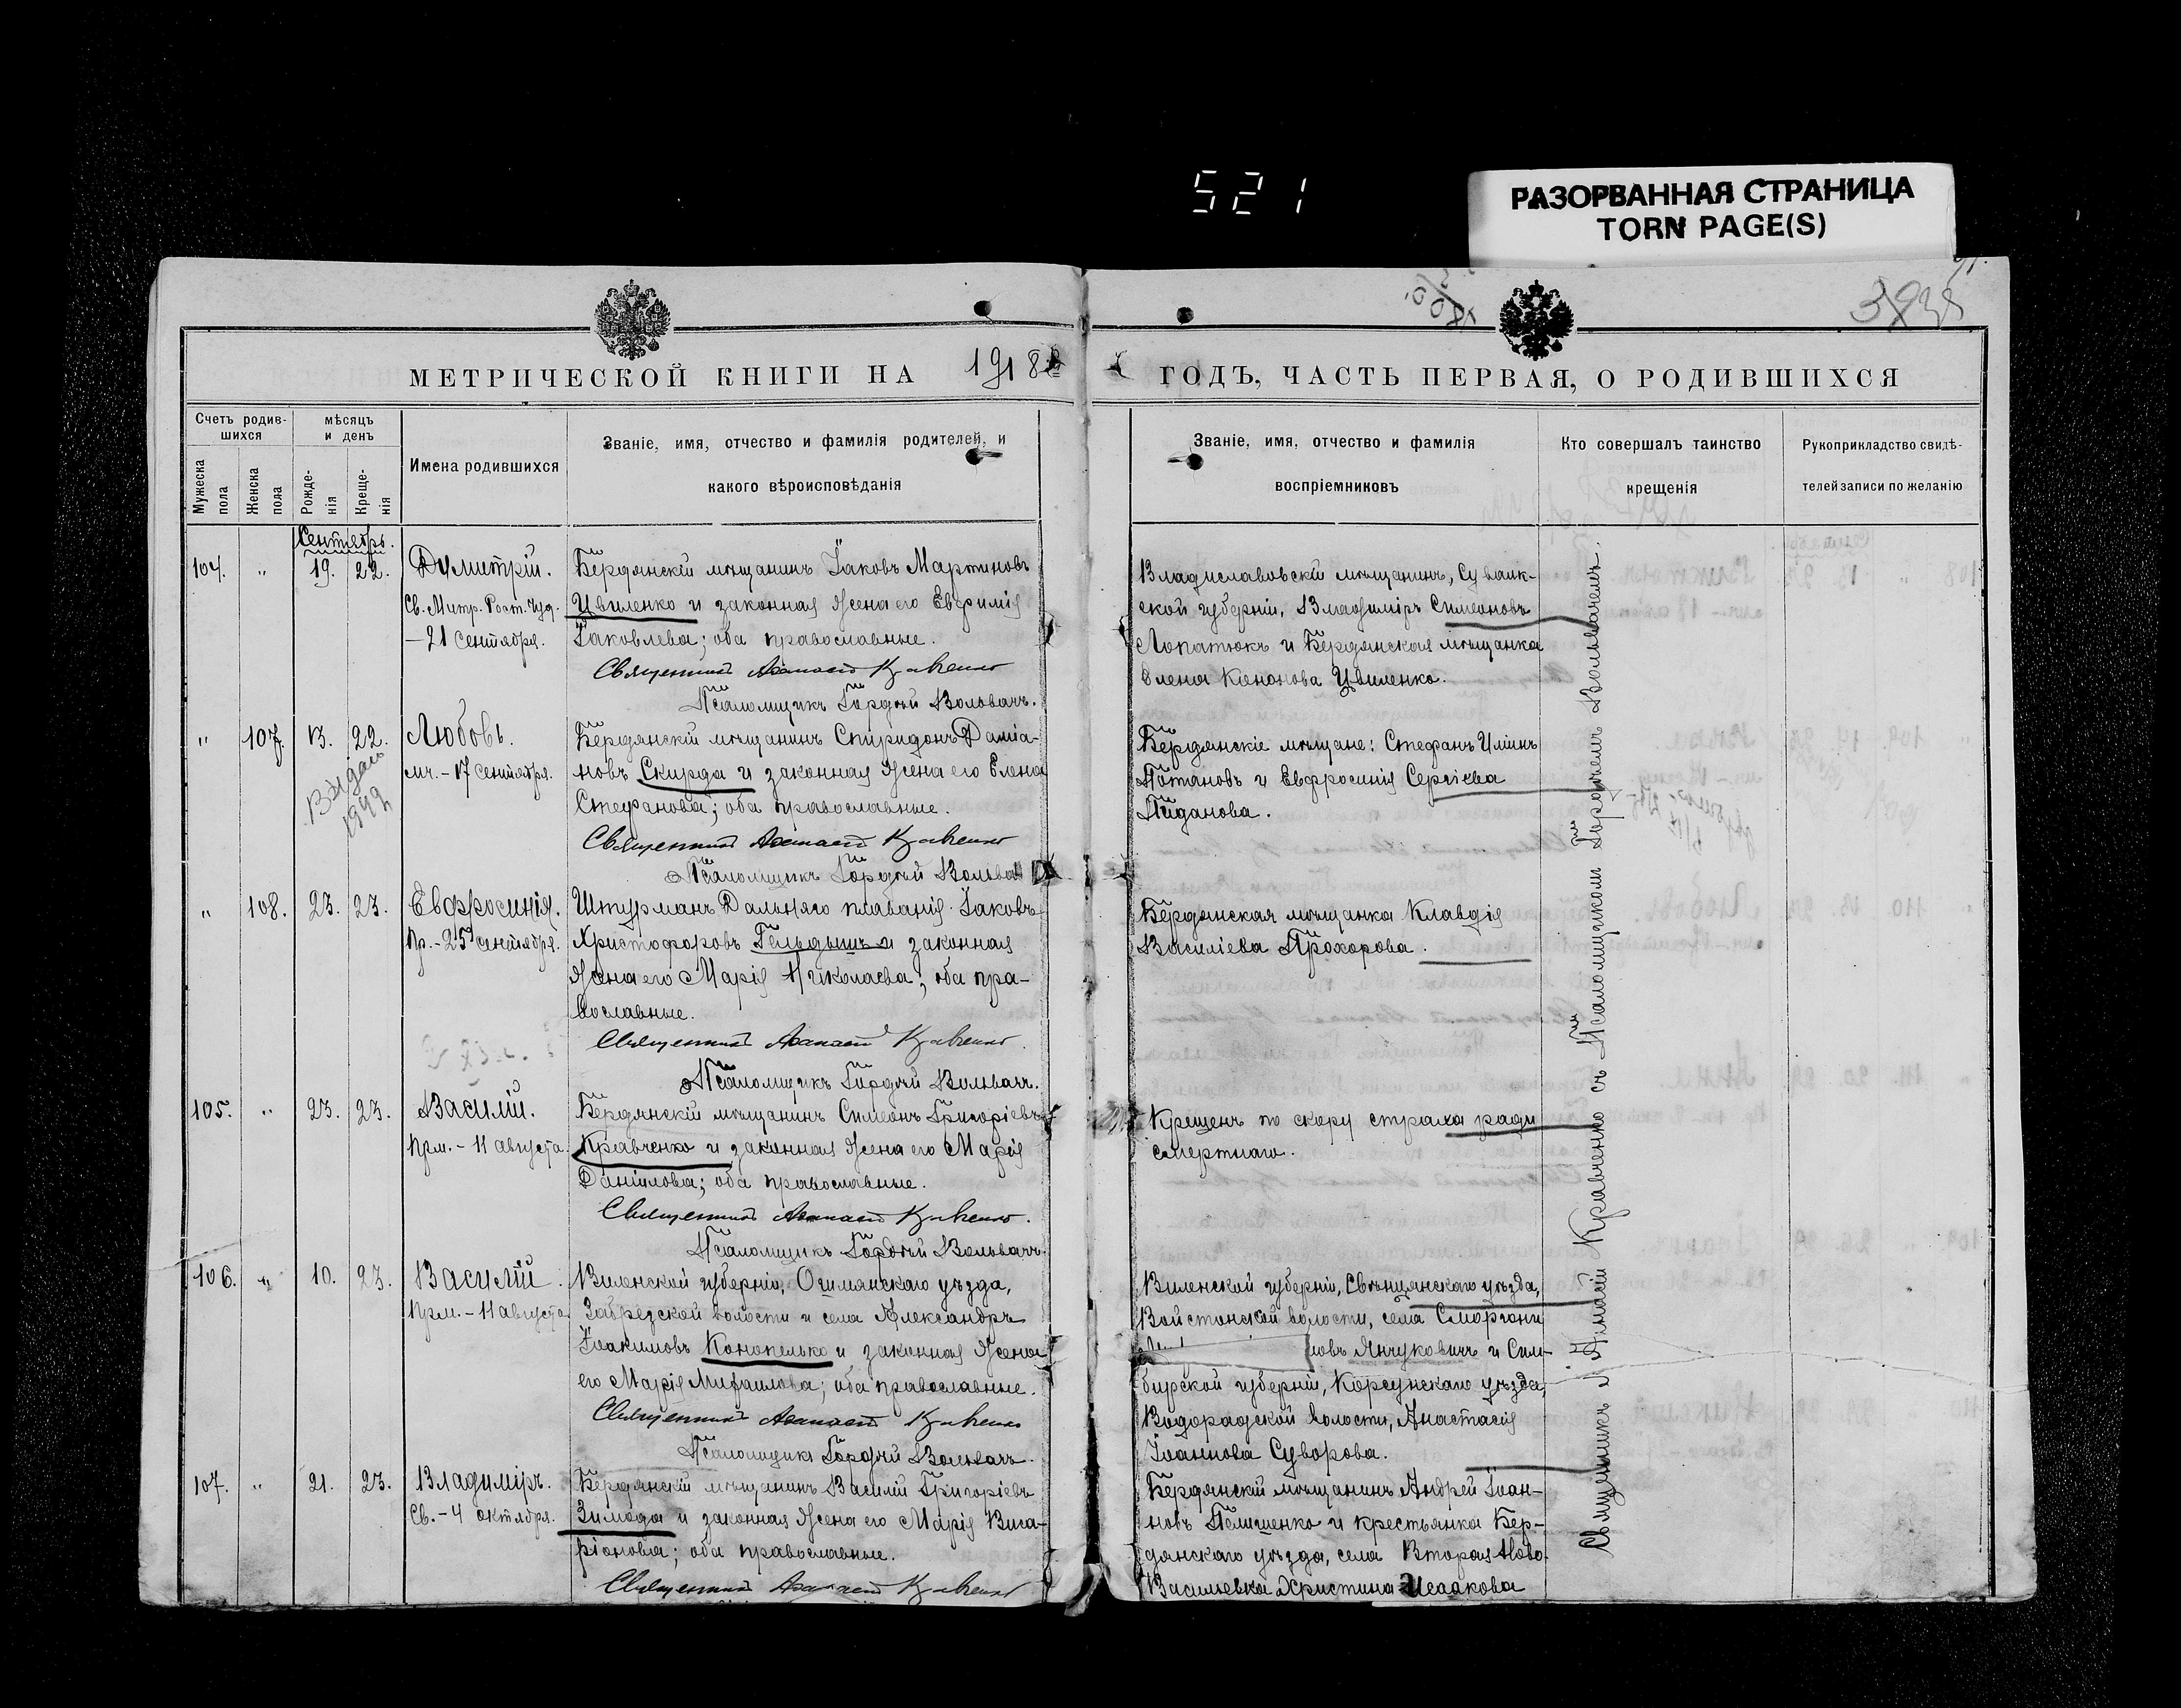 521
РАЗОРВАННАЯ СТРАНИЦА
TORN PAGE(S)
МЕТРИЧЕСКОЙ КНИГИ НА 1918
ГОДЪ, ЧАСТЬ ПЕРВАЯ, О РОДИВШИХСЯ
Счетъ родив-
шихся
Мужеска пола
Женска пола
мѣсяцъ
и день
Рожде-
нія
Креще-
нія
Имена родившихся
Званіе, имя, отчество и фамилія родителей, и
какого вѣроисповѣданія
Званіе, имя, отчество и фамилія
воспріемниковъ
Кто совершалъ таинство
крещенія
Рукоприкладство свидѣ-
телей записи по желанію
Сентябрь.
104. " 19. 22. Димитрій.
Св. Митр. Рост. Чуд.
—21 Сентября.
Бердянскій мѣщанинъ Іаковъ Мартиновъ
Цвиленко и законная жена его Евфимія
Іаковлева; оба православные.
Священникъ Кравченко
Псаломщикъ Гордѣй Вольвачъ.
Владиславовскій мѣщанинъ, Сувалк-
ской губерніи, Владиміръ Симеоновъ
Лопатюкъ и Бердянская мѣщанка
Елена Цвиленко.
" 107. 13. 22. Любовь.
мч. - 17 Сентября.
Выдано
Бердянскій мѣщанинъ Спиридонъ Даміа-
новъ Скирда и законная жена его Елена
Стефанова; оба православные.
Священникъ Кравченко
Псаломщикъ Гордѣй Вольвачъ
Бердянскіе мѣщане: Стефанъ
Потаповъ и Евфросинія Сергіева
" 108. 23. 23. Евфросинія.
Пр. - 25 сентября.
Штурманъ Дальняго плаванія Іаковъ
Христофоровъ Гельдышъ и законная
жена его Марія Николаева; оба пра-
вославные.
Священникъ Кравченко.
Псаломщикъ Гордѣй Вольвачъ.
Бердянская мѣщанка Клавдія
Василіева Прохорова.
105. " 23. 23. Василій.
Прм. - 11 августа.
Бердянскій мѣщанинъ Симеонъ Григоріевъ
Кравченко и законная жена его Марія
Даніилова; оба православные.
Священникъ Кравченко.
Псаломщикъ Гордѣй Вольвачъ.
Крещенъ по скору страха ради
смертнаго.
106. " 10. 23. Василій
Прм. - 11 августа
Виленской губерніи, Ошмянскаго уѣзда,
Забрезской волости и села Александръ
Іоакимовъ Конопелько и законная жена
его Марія Михаилова; оба православные.
Священникъ Кравченко
Псаломщикъ Гордѣй Вольвачъ.
Виленской губерніи, Свѣнцянскаго уѣзда,
Войстомской волости, села Сморгони
ловъ Янчуковичъ и Сим-
бирской губерніи, Корсунскаго уѣзда,
волости, Анастасія
Іоаннова Суворова.
107. " 21. 23. Владиміръ.
Св. - 4 октября.
Бердянскій мѣщанинъ Василій Григоріевъ
Зимода и законная жена его Марія Висa-
ріонова; оба православные.
Священникъ Кравченко
Бердянскій мѣщанинъ Андрей Іоан-
новъ Пелишенко и крестьянка Бер-
дянскаго уѣзда, села Вторая Ново-
Васильевка Христина Исаакова
Священникъ Кравченко съ Псаломщикомъ Гордѣемъ Вольвачемъ.